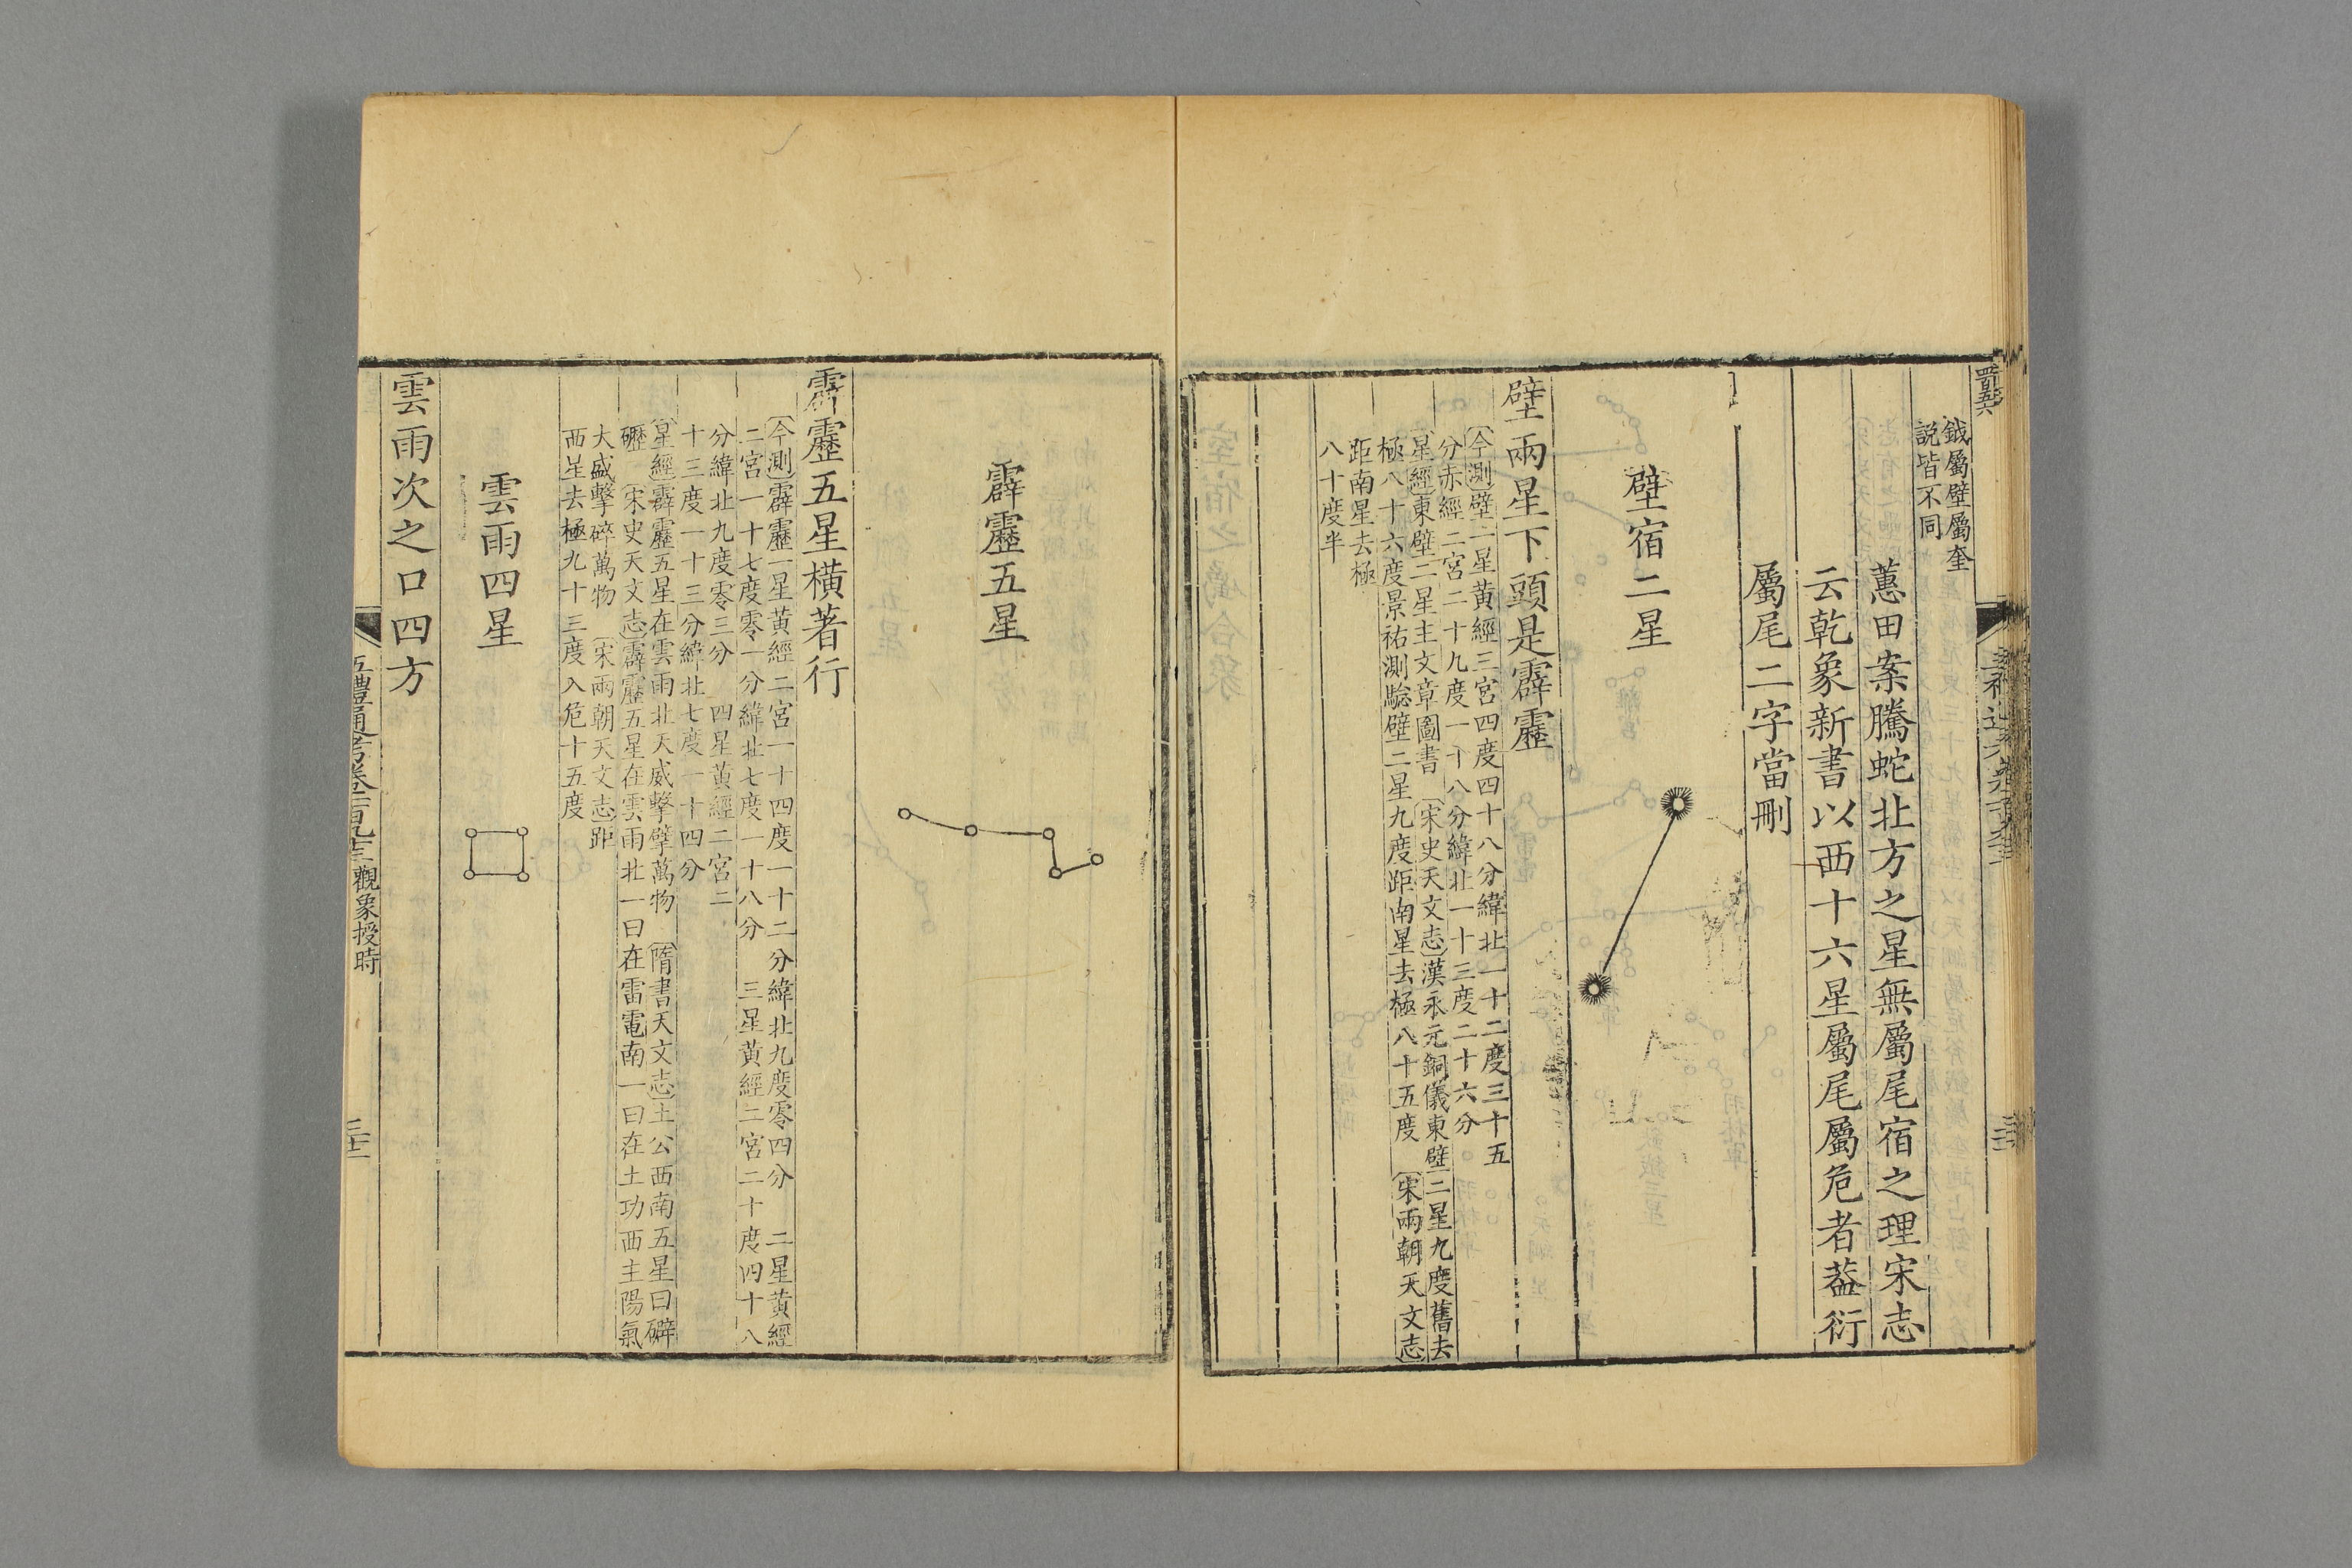 鉞屬壁屬奎
説皆不同
蕙田案騰蛇北方之星無屬尾宿之理宋志
云乾象新書以西十六星屬尾屬危者葢衍
屬尾二字當刪
壁宿二星
壁兩星下頭是霹靂
〔今測〕壁一星黃經三宮四度四十八分緯北一十二度三十五
分赤經二宮二十九度一十八分緯北一十三度二十六分
〔星經〕東壁二星主文章圖書　〔宋史天文志〕漢永元銅儀東壁二星九度舊去
極八十六度景祐測驗壁二星九度距南星去極八十五度　〔宋兩朝天文志〕
距南星去極
八十度半
霹靂五星
霹靂五星橫著行
〔今測〕霹靂一星黃經二宮一十四度一十二分緯北九度零四分　二星黃經
二宮一十七度零一分緯北七度一十八分　三星黃經二宮二十度四十八
分緯北九度零三分　四星黃經二宮二
十三度一十三分緯北七度一十四分
〔星經〕霹靂五星在雲雨北天威擊擘萬物　〔隋書天文志〕土公西南五星曰礔
礰　〔宋史天文志〕霹靂五星在雲雨北一曰在雷電南一曰在土功西主陽氣
大盛擊碎萬物　〔宋兩朝天文志〕距
西星去極九十三度入危十五度
雲雨四星
雲雨次之口四方
五禮通考卷一百九十三觀象授時